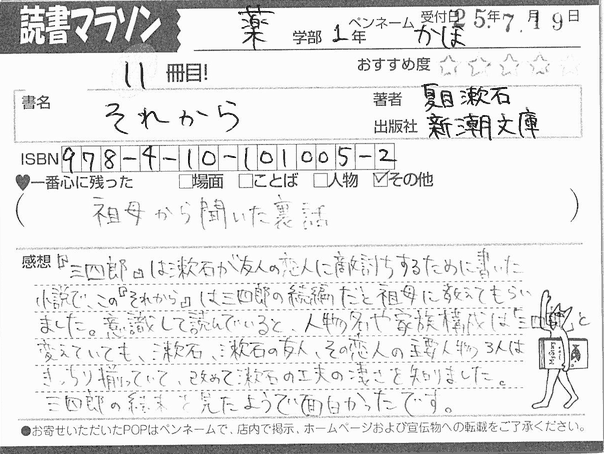 読書マラソン
薬 学部 1年 ペンネーム かほ 受付日 25年7月19日
11 冊目! おすすめ度 ☆☆☆☆☆
書名 それから 著者 夏目漱石
出版社 新潮文庫
ISBN 978-4-10-101005-2
♥一番心に残った □場面 □ことば □人物 ☑その他
(祖母から聞いた裏話)
感想 『三四郎』は漱石が友人の恋人に敵討ちするために書いた
小説で、この『それから』は三四郎の続編だと祖母に教えてもらい
ました。意識して読んでいると、人物名や家族構成は『三四郎』と
変えていても、漱石、漱石の友人、その恋人の主要人物3人は
きっちり揃っていて、改めて漱石の工夫の凄さを知りました。
三四郎の結末を見たようで面白かったです。
●お寄せいただいたPOPはペンネームで、店内で掲示、ホームページおよび宣伝物への転載をご了承ください。